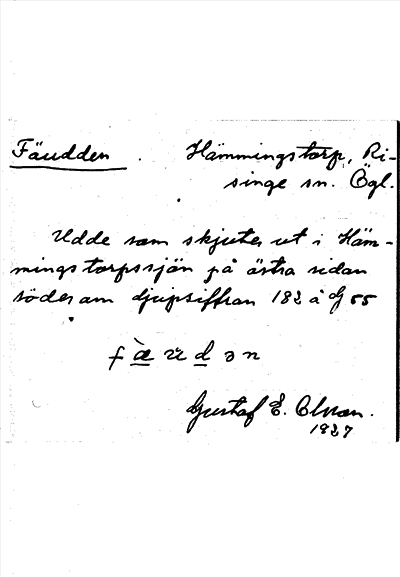 Fäudden. Hämmingstorp, Ri-
singe sn. Ögl.
Udde som skjuter ut i Häm-
mingstorpssjön på östra sidan
söder om djupsiffran 182 å G 55
f æ̀ ü d ə n
Gustaf E. Olsson.
1927